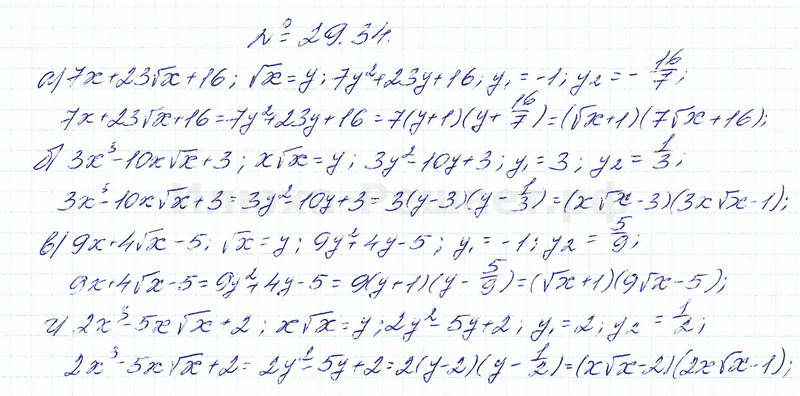 № 29.34.
а) 7x+23√x+16; √x=y; 7y²+23y+16; y₁=-1; y₂=-16/7;
7x+23√x+16=7y²+23y+16=7(y+1)(y+16/7)=(√x+1)(7√x+16);
б) 3x³-10x√x+3; x√x=y; 3y²-10y+3; y₁=3; y₂=1/3;
3x³-10x√x+3=3y²-10y+3=3(y-3)(y-1/3)=(x√x-3)(3x√x-1);
в) 9x+4√x-5; √x=y; 9y²+4y-5; y₁=-1; y₂=5/9;
9x+4√x-5=9y²+4y-5=9(y+1)(y-5/9)=(√x+1)(9√x-5);
г) 2x³-5x√x+2; x√x=y; 2y²-5y+2; y₁=2; y₂=1/2;
2x³-5x√x+2=2y²-5y+2=2(y-2)(y-1/2)=(x√x-2)(2x√x-1);